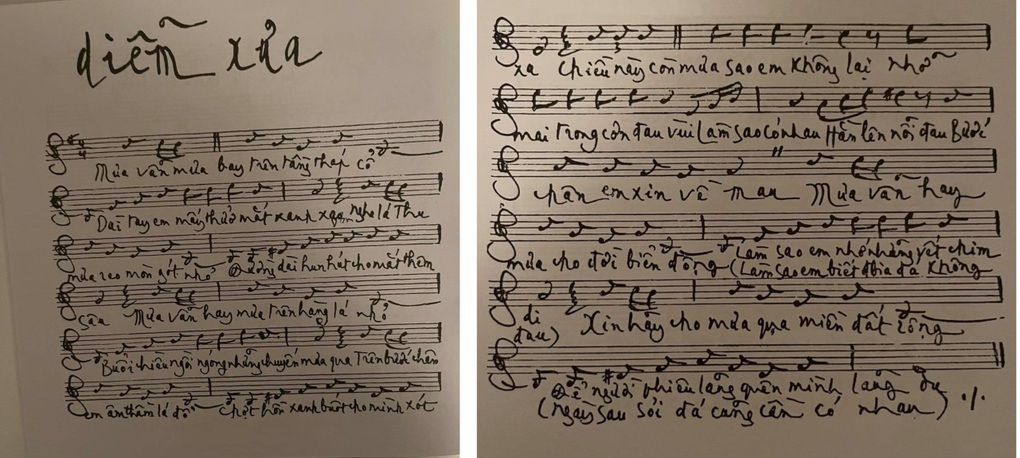 diễm xưa
Mưa vẫn mưa bay trên tầng tháp cổ
Dài tay em mấy thuở mắt xanh xao, nghe lá Thu
mưa reo mòn gót nhỏ Đường dài hun hút cho mắt thêm
sâu Mưa vẫn hay mưa trên hàng lá nhỏ
Buổi chiều ngồi ngóng những chuyến mưa qua Trên bước chân
em âm thầm lá đổ Chợt hồn xanh buốt cho mình xót
xa Chiều này còn mưa sao em Không lại nhỡ
mai trong cơn đau vùi Làm sao có nhau Hằn lên nỗi đau Bước
chân em xin về mau Mưa vẫn hay
mưa cho đời biển động Làm sao em nhớ những vết chim
(Làm sao em biết bia đá không
di Xin hãy cho mưa qua miền đất rộng
đau)
Để người phiêu lãng quên mình lãng du
(ngày sau sỏi đá cũng cần có nhau)